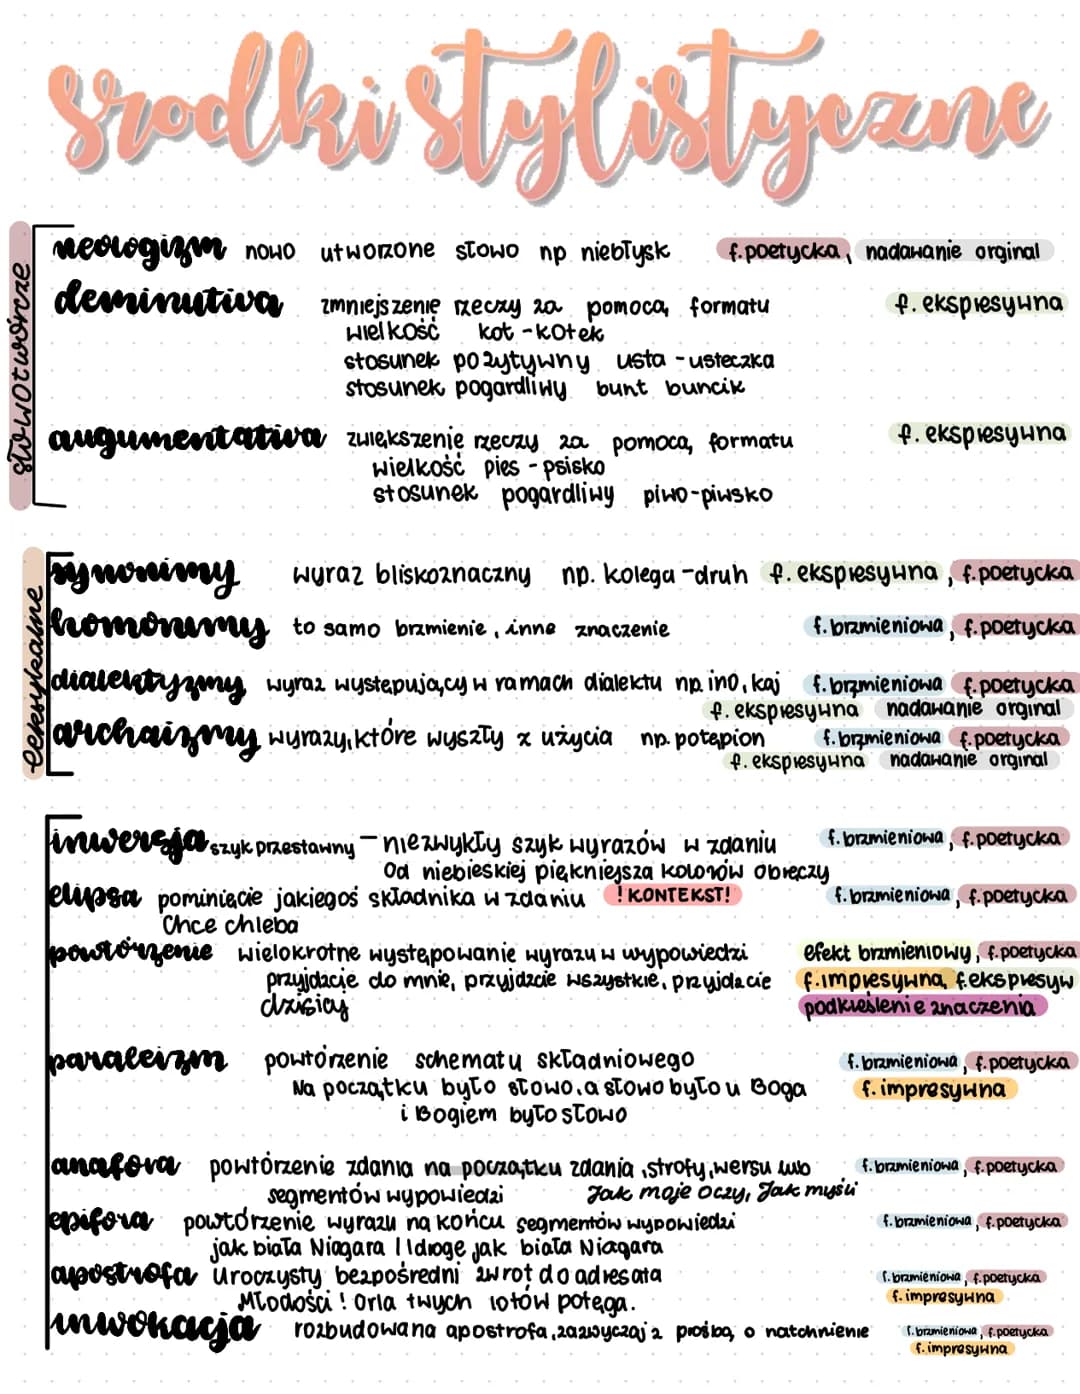 srodki stylistyczne
słowotwórcze
neologizm nowo utworzone słowo np niebłysk f.poetycka, nadawanie orginal
deminutiva zmniejszenie rzeczy za pomocą formatu f. ekspresywna
wielkość kot - kotek
stosunek pozytywny usta - usteczka
stosunek pogardliwy bunt buncik
augumentativa zwiększenie rzeczy za pomocą formatu f. ekspresywna
wielkość pies - psisko
stosunek pogardliwy piwo-piwsko
leksykalne
synonimy wyraz bliskoznaczny np. kolega - druh f. ekspresywna, f.poetycka
homonimy to samo brzmienie, inne znaczenie f.brzmieniowa, f.poetycka
dialektyzmy wyraz występujący w ramach dialektu np. ino, kaj f.brzmieniowa f.poetycka
f. ekspresywna nadawanie orginal
archaizmy wyrazy, które wyszły z użycia np. potępion f.brzmieniowa f.poetycka
f. ekspresywna nadawanie orginal
inwersja szyk przestawny - niezwykły szyk wyrazów w zdaniu f.brzmieniowa, f.poetycka
Od niebieskiej piękniejsza kolorów obręczy
elipsa pominięcie jakiegoś składnika w zdaniu !KONTEKST! f.brzmieniowa, f.poetycka
Chce chleba
powtórzenie wielokrotne występowanie wyrazu w wypowiedzi efekt brzmieniowy, f.poetycka
przyjdzcie do mnie, przyjdzcie wszystkie, przyjdzcie f.impresywna, f.ekspresyw
dzisiaj podkreślenie znaczenia
paraleizm powtórzenie schematu składniowego f.brzmieniowa, f.poetycka
Na początku było słowo, a słowo było u Boga f. impresywna
i Bogiem było słowo
anafora powtórzenie zdania na początku zdania, strofy, wersu lub f.brzmieniowa, f.poetycka
segmentów wypowiedzi Jak moje oczy, Jak myśli
epifora powtórzenie wyrazu na końcu segmentów wypowiedzi f.brzmieniowa, f.poetycka
jak biała Niagara I Idrogę jak biała Niagara
apostrofa Uroczysty bezpośredni zwrot do adresata f.brzmieniowa, f.poetycka
Młodości! Orla twych lotów potęga. f. impresywna
inwokacja rozbudowana apostrofa, zazwyczaj z prośbą o natchnienie f.brzmieniowa, f.poetycka
f. impresywna